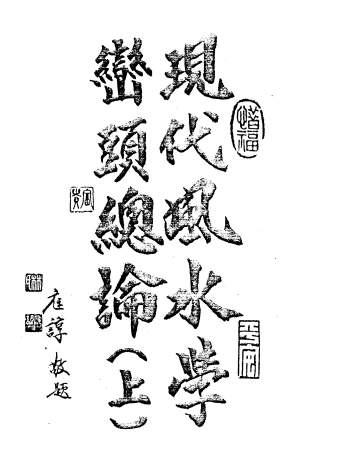 現代風水學
巒頭總論(上)
淳敬題